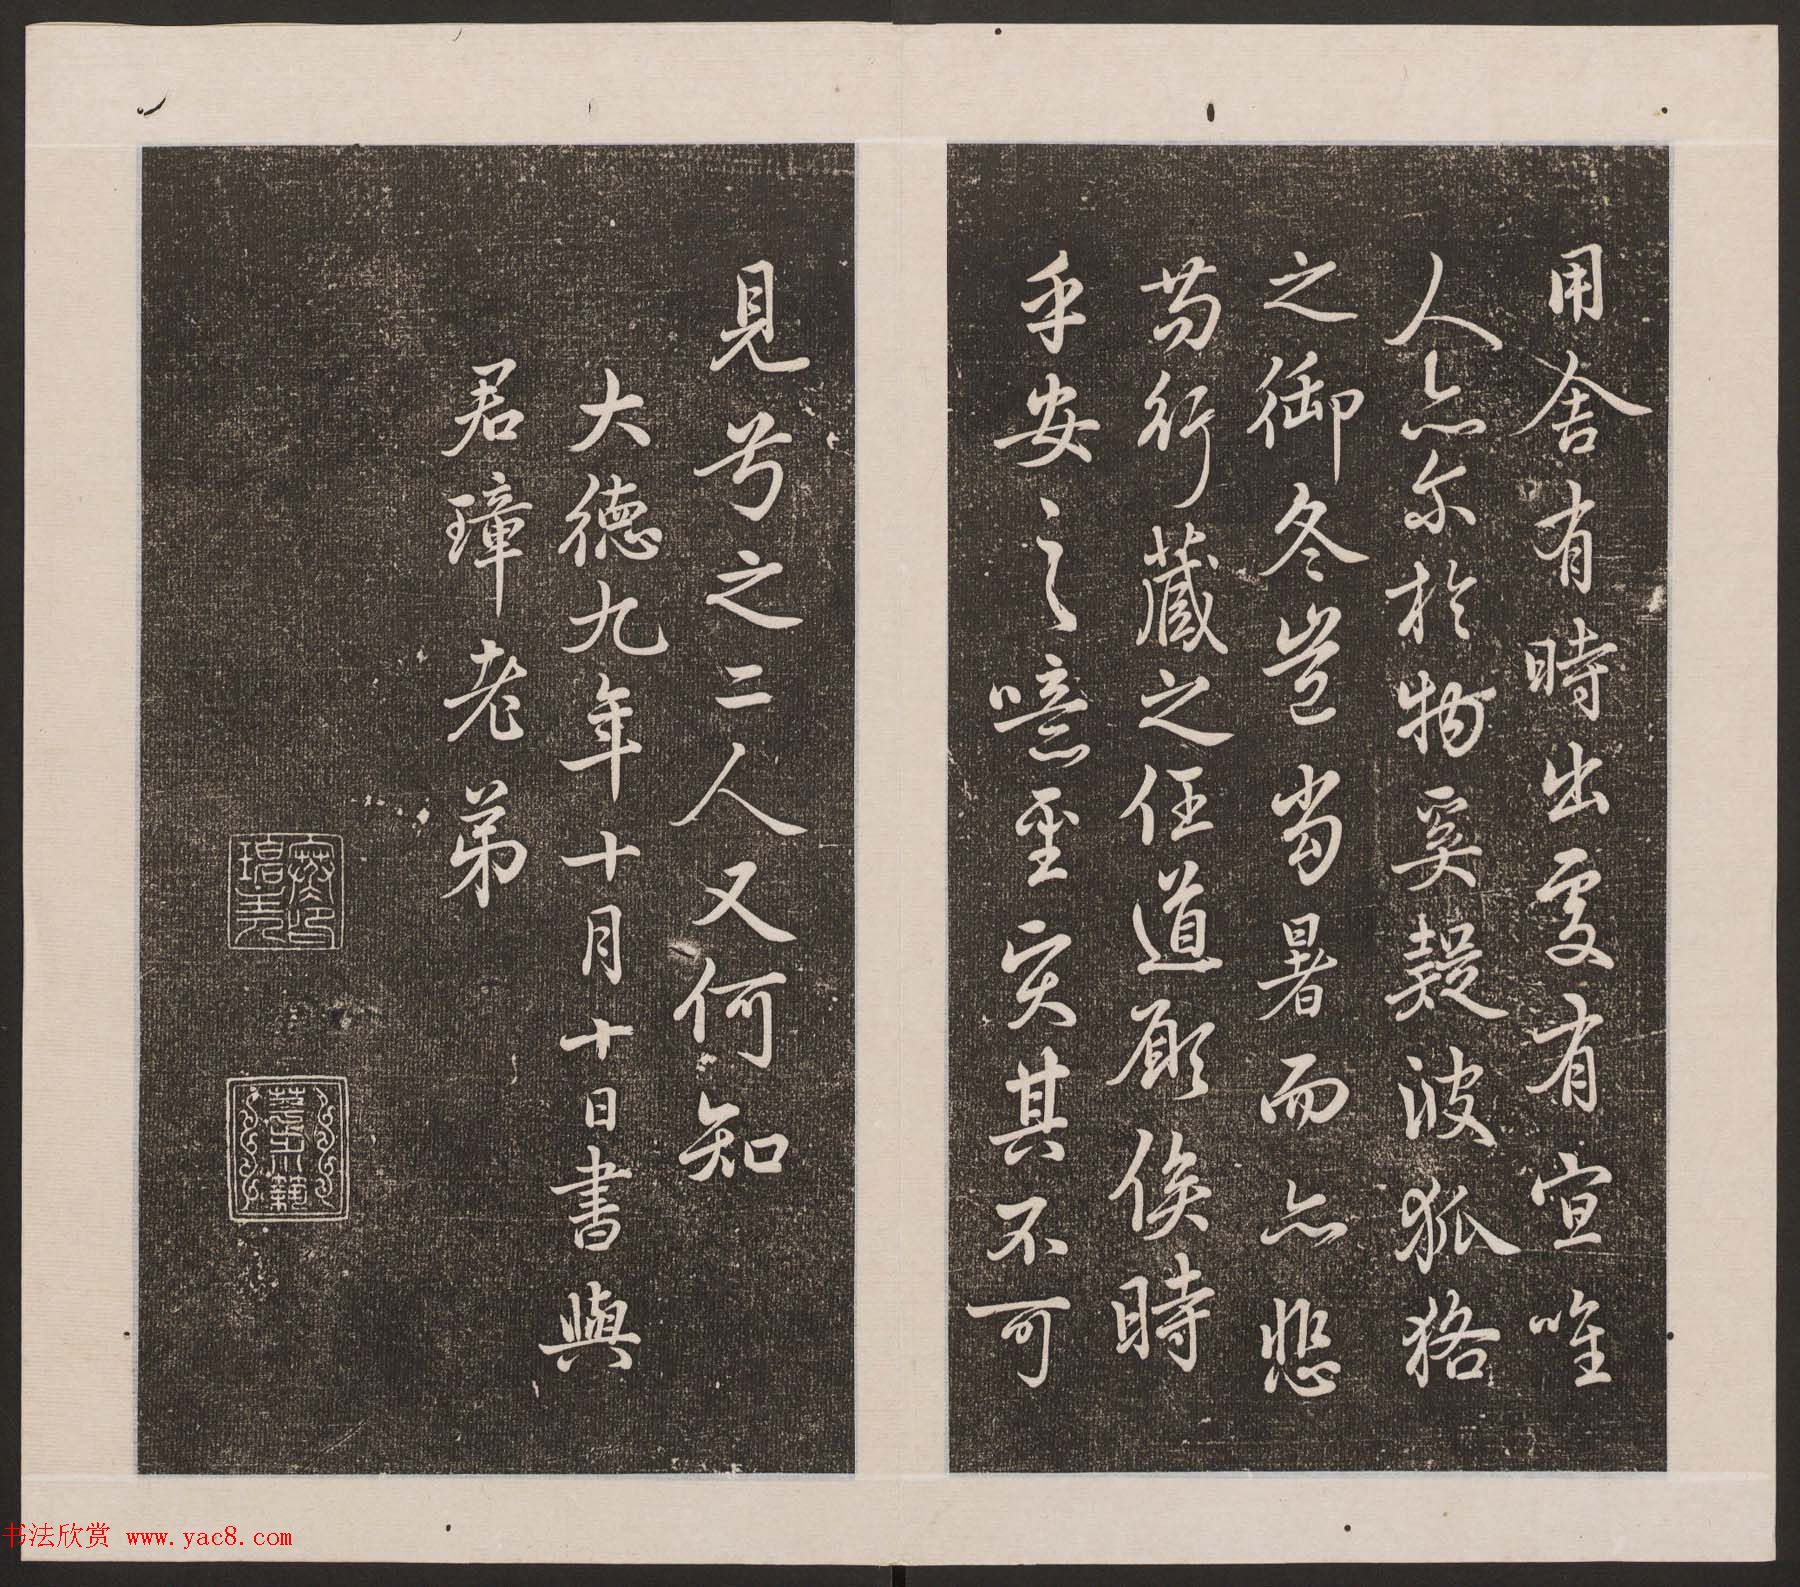 用舍有時出處有宜唯
人亦尓於物奚疑彼狐狢
之御冬豈當暑而亦悲
苟行藏之任道願俟時
乎安之噫聖賢其不可
見兮之二人又何知
大德九年十月十日書與
君璋老弟
书法欣赏 www.yac8.com